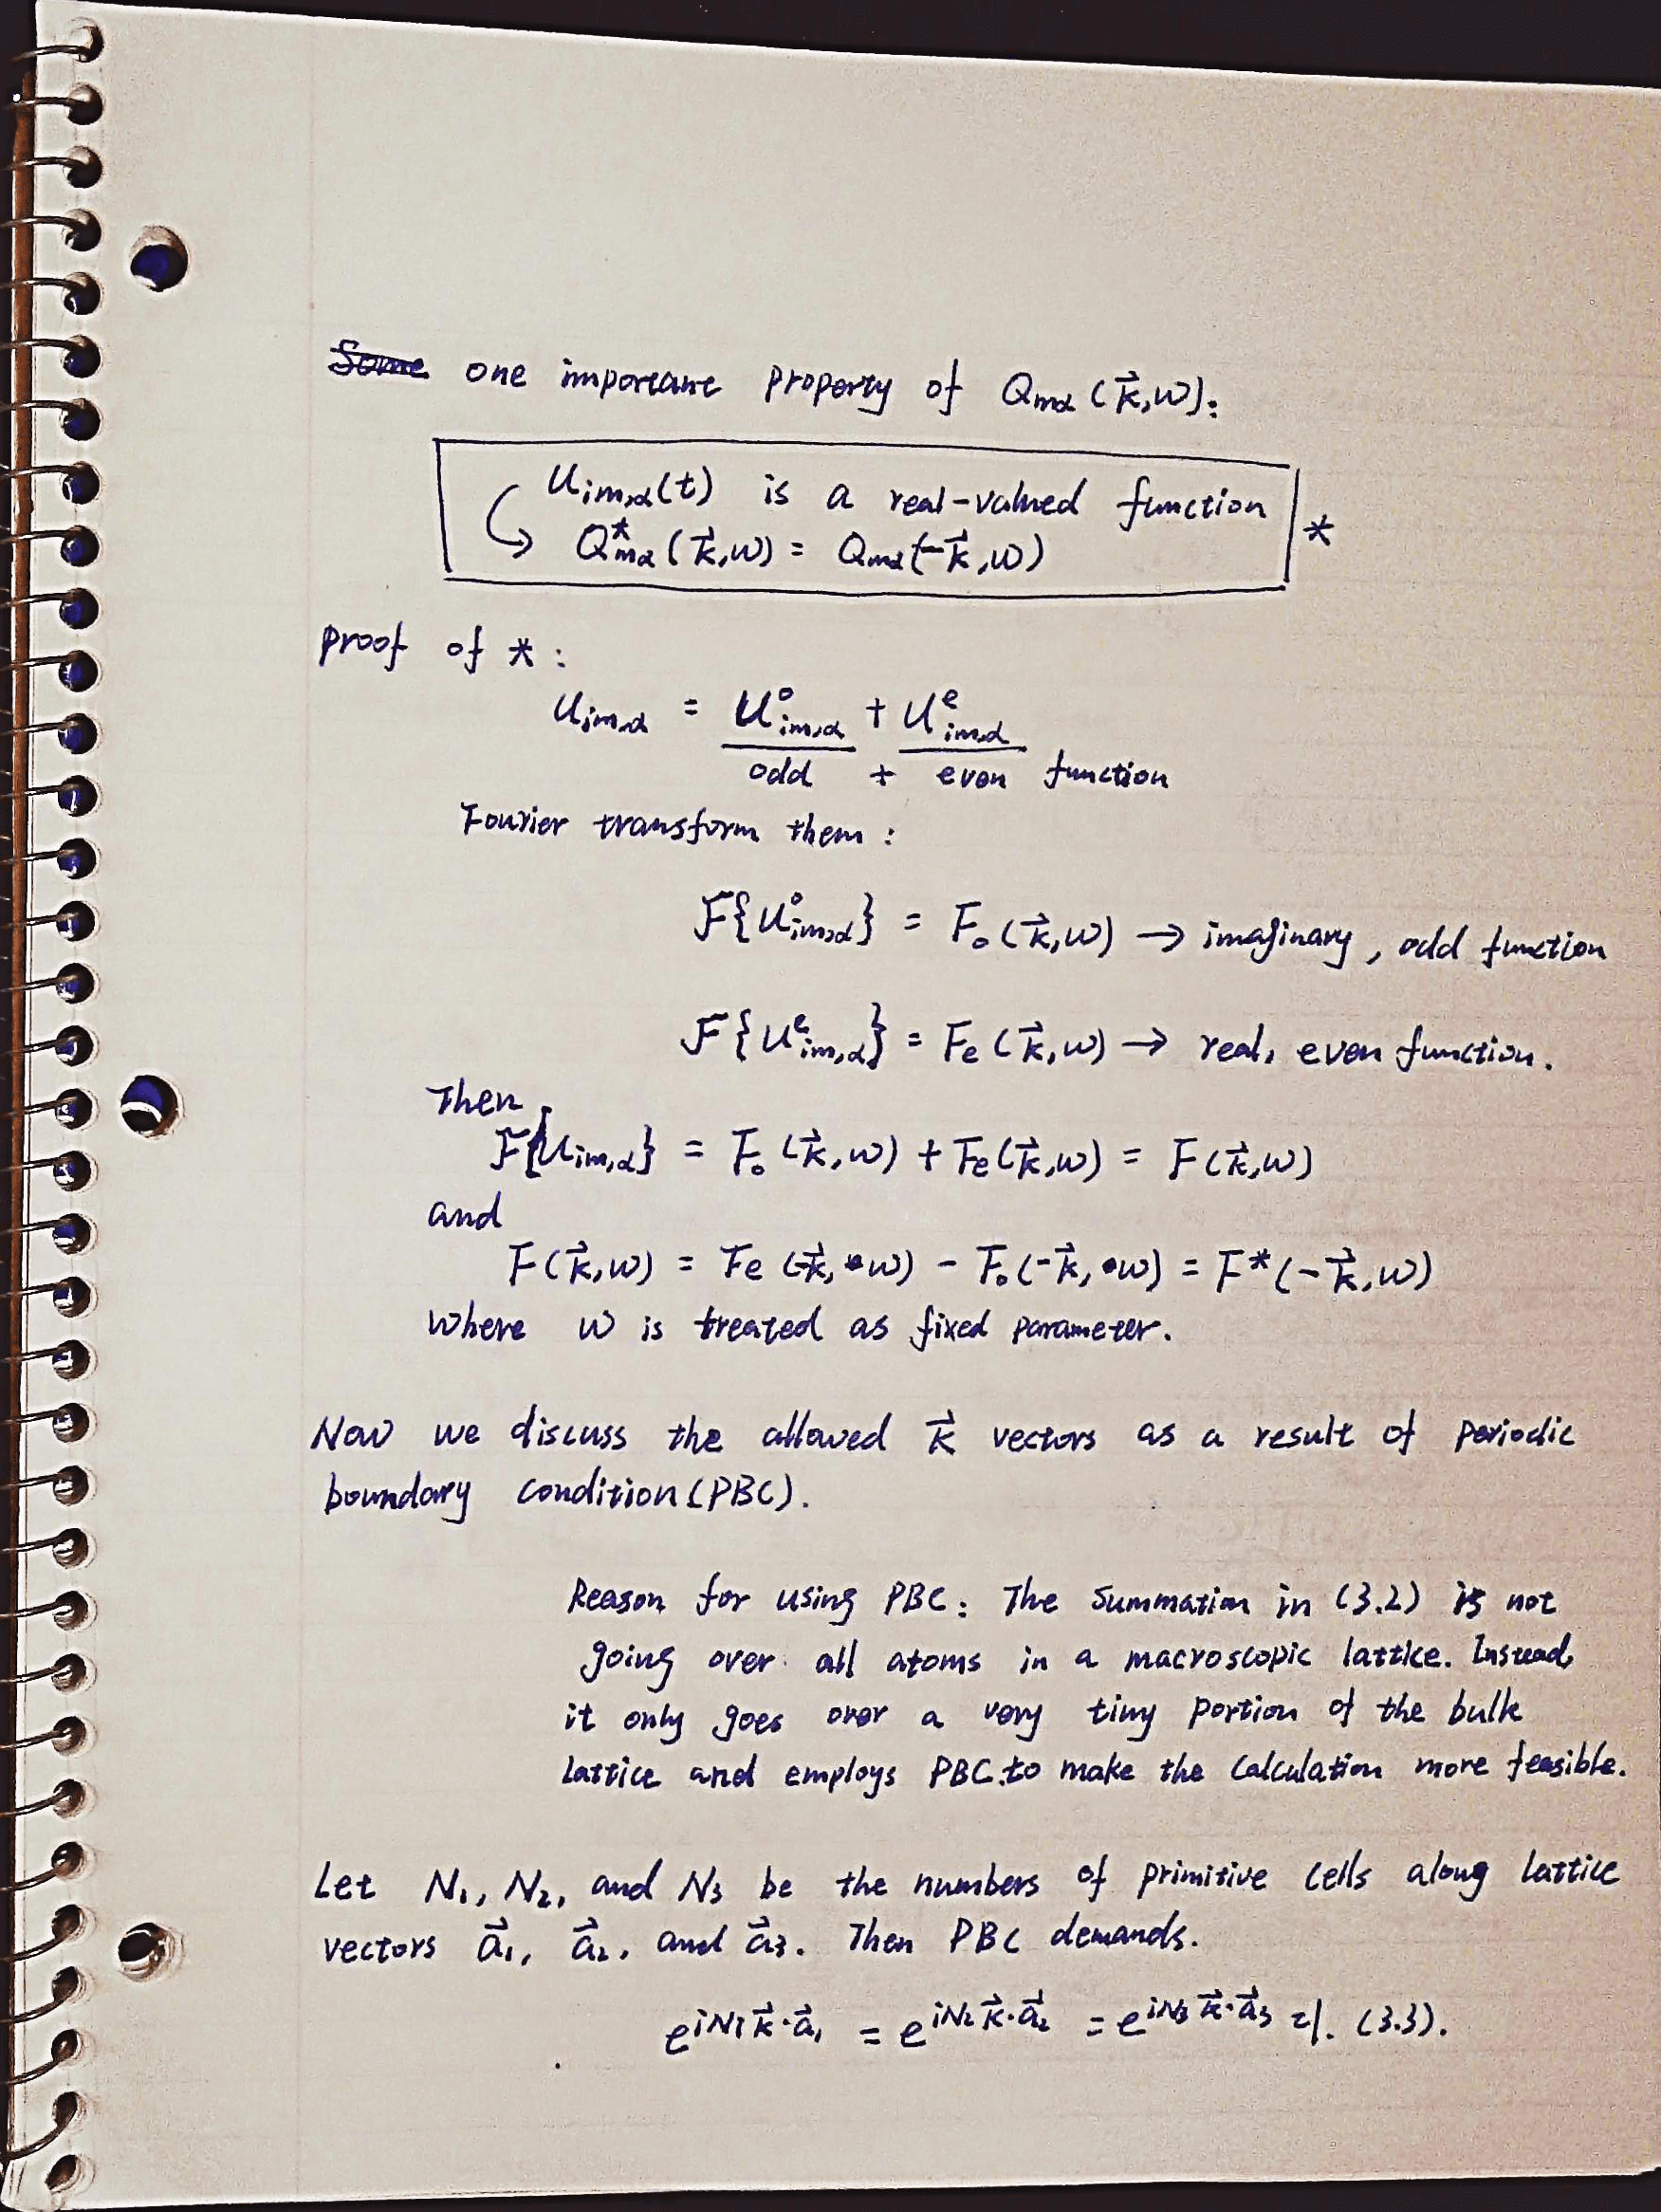 ~~Some~~ one important property of Qmα (k⃗,ω):
Uim,α(t) is a real-valued function
↳ Q*mα (k⃗,ω) = Qmα(-k⃗,ω) *
Proof of * :
Uim,α = U°im,α + Uᵉim,α
odd + even function
Fourier transform them :
F{U°im,α} = F₀(k⃗,ω) → imaginary, odd function
F{Uᵉim,α} = Fe(k⃗,ω) → real, even function.
Then
F{Uim,α} = F₀(k⃗,ω) + Fe(k⃗,ω) = F(k⃗,ω)
and
F(k⃗,ω) = Fe(-k⃗,ω) - F₀(-k⃗,ω) = F*(-k⃗,ω)
where ω is treated as fixed parameter.
Now we discuss the allowed k⃗ vectors as a result of periodic
boundary condition (PBC).
Reason for using PBC: The summation in (3.2) is not
going over all atoms in a macroscopic lattice. Instead,
it only goes over a very tiny portion of the bulk
lattice and employs PBC to make the calculation more feasible.
Let N₁, N₂, and N₃ be the numbers of primitive cells along lattice
vectors a⃗₁, a⃗₂, and a⃗₃. Then PBC demands.
e^{iN₁k⃗·a⃗₁} = e^{iN₂k⃗·a⃗₂} = e^{iN₃k⃗·a⃗₃} = 1. (3.3).